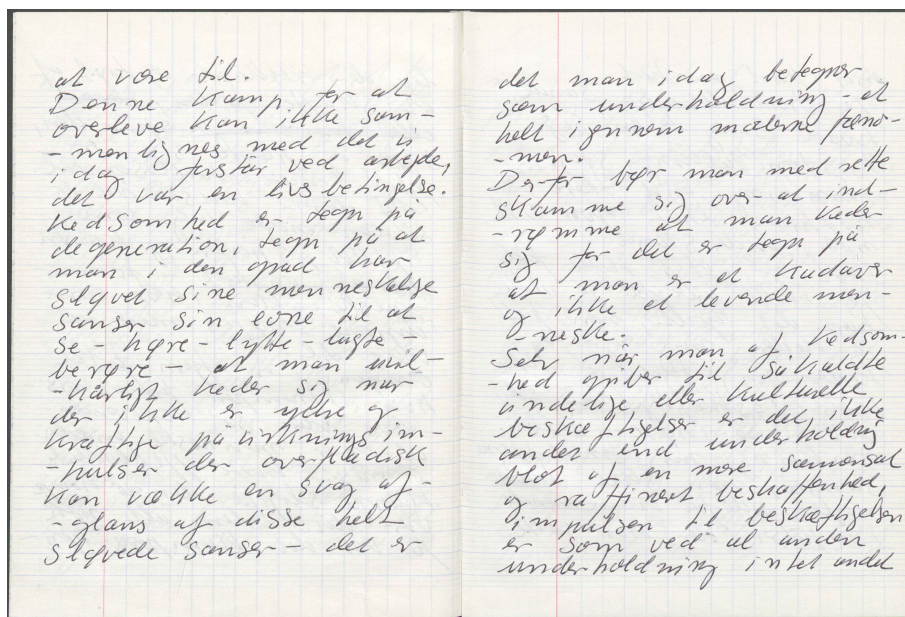 at være til.
Denne kamp for at
overleve kan ikke sam-
-menlignes med det vi
idag forstår ved arbejde,
det var en livsbetingelse.
Kedsomhed er tegn på
degeneration, tegn på at
man i den grad har
sløvet sine menneskelige
sanser sin evne til at
se - høre - lytte - lugte -
berøre - at man uvil-
-kårligt keder sig når
der ikke er ydre og
kraftige påvirknings im-
-pulser der overfladisk
kan vække en svag af-
-glans af disse helt
sløvede sanser - det er
det man idag betegner
som underholdning - et
helt igennem moderne fæno-
-men.
Derfor bør man med rette
skamme sig over at ind-
-rømme at man keder
sig for det er tegn på
at man er et kadaver
og ikke et levende men-
-neske.
Selv når man af kedsom-
-hed griber til såkaldte
åndelige eller kulturelle
beskæftigelser er det ikke
andet end underholdning
blot af en mere sammensat
og raffineret beskaffenhed,
impulsen til beskæftigelsen
er som ved al anden
underholdning intet andet